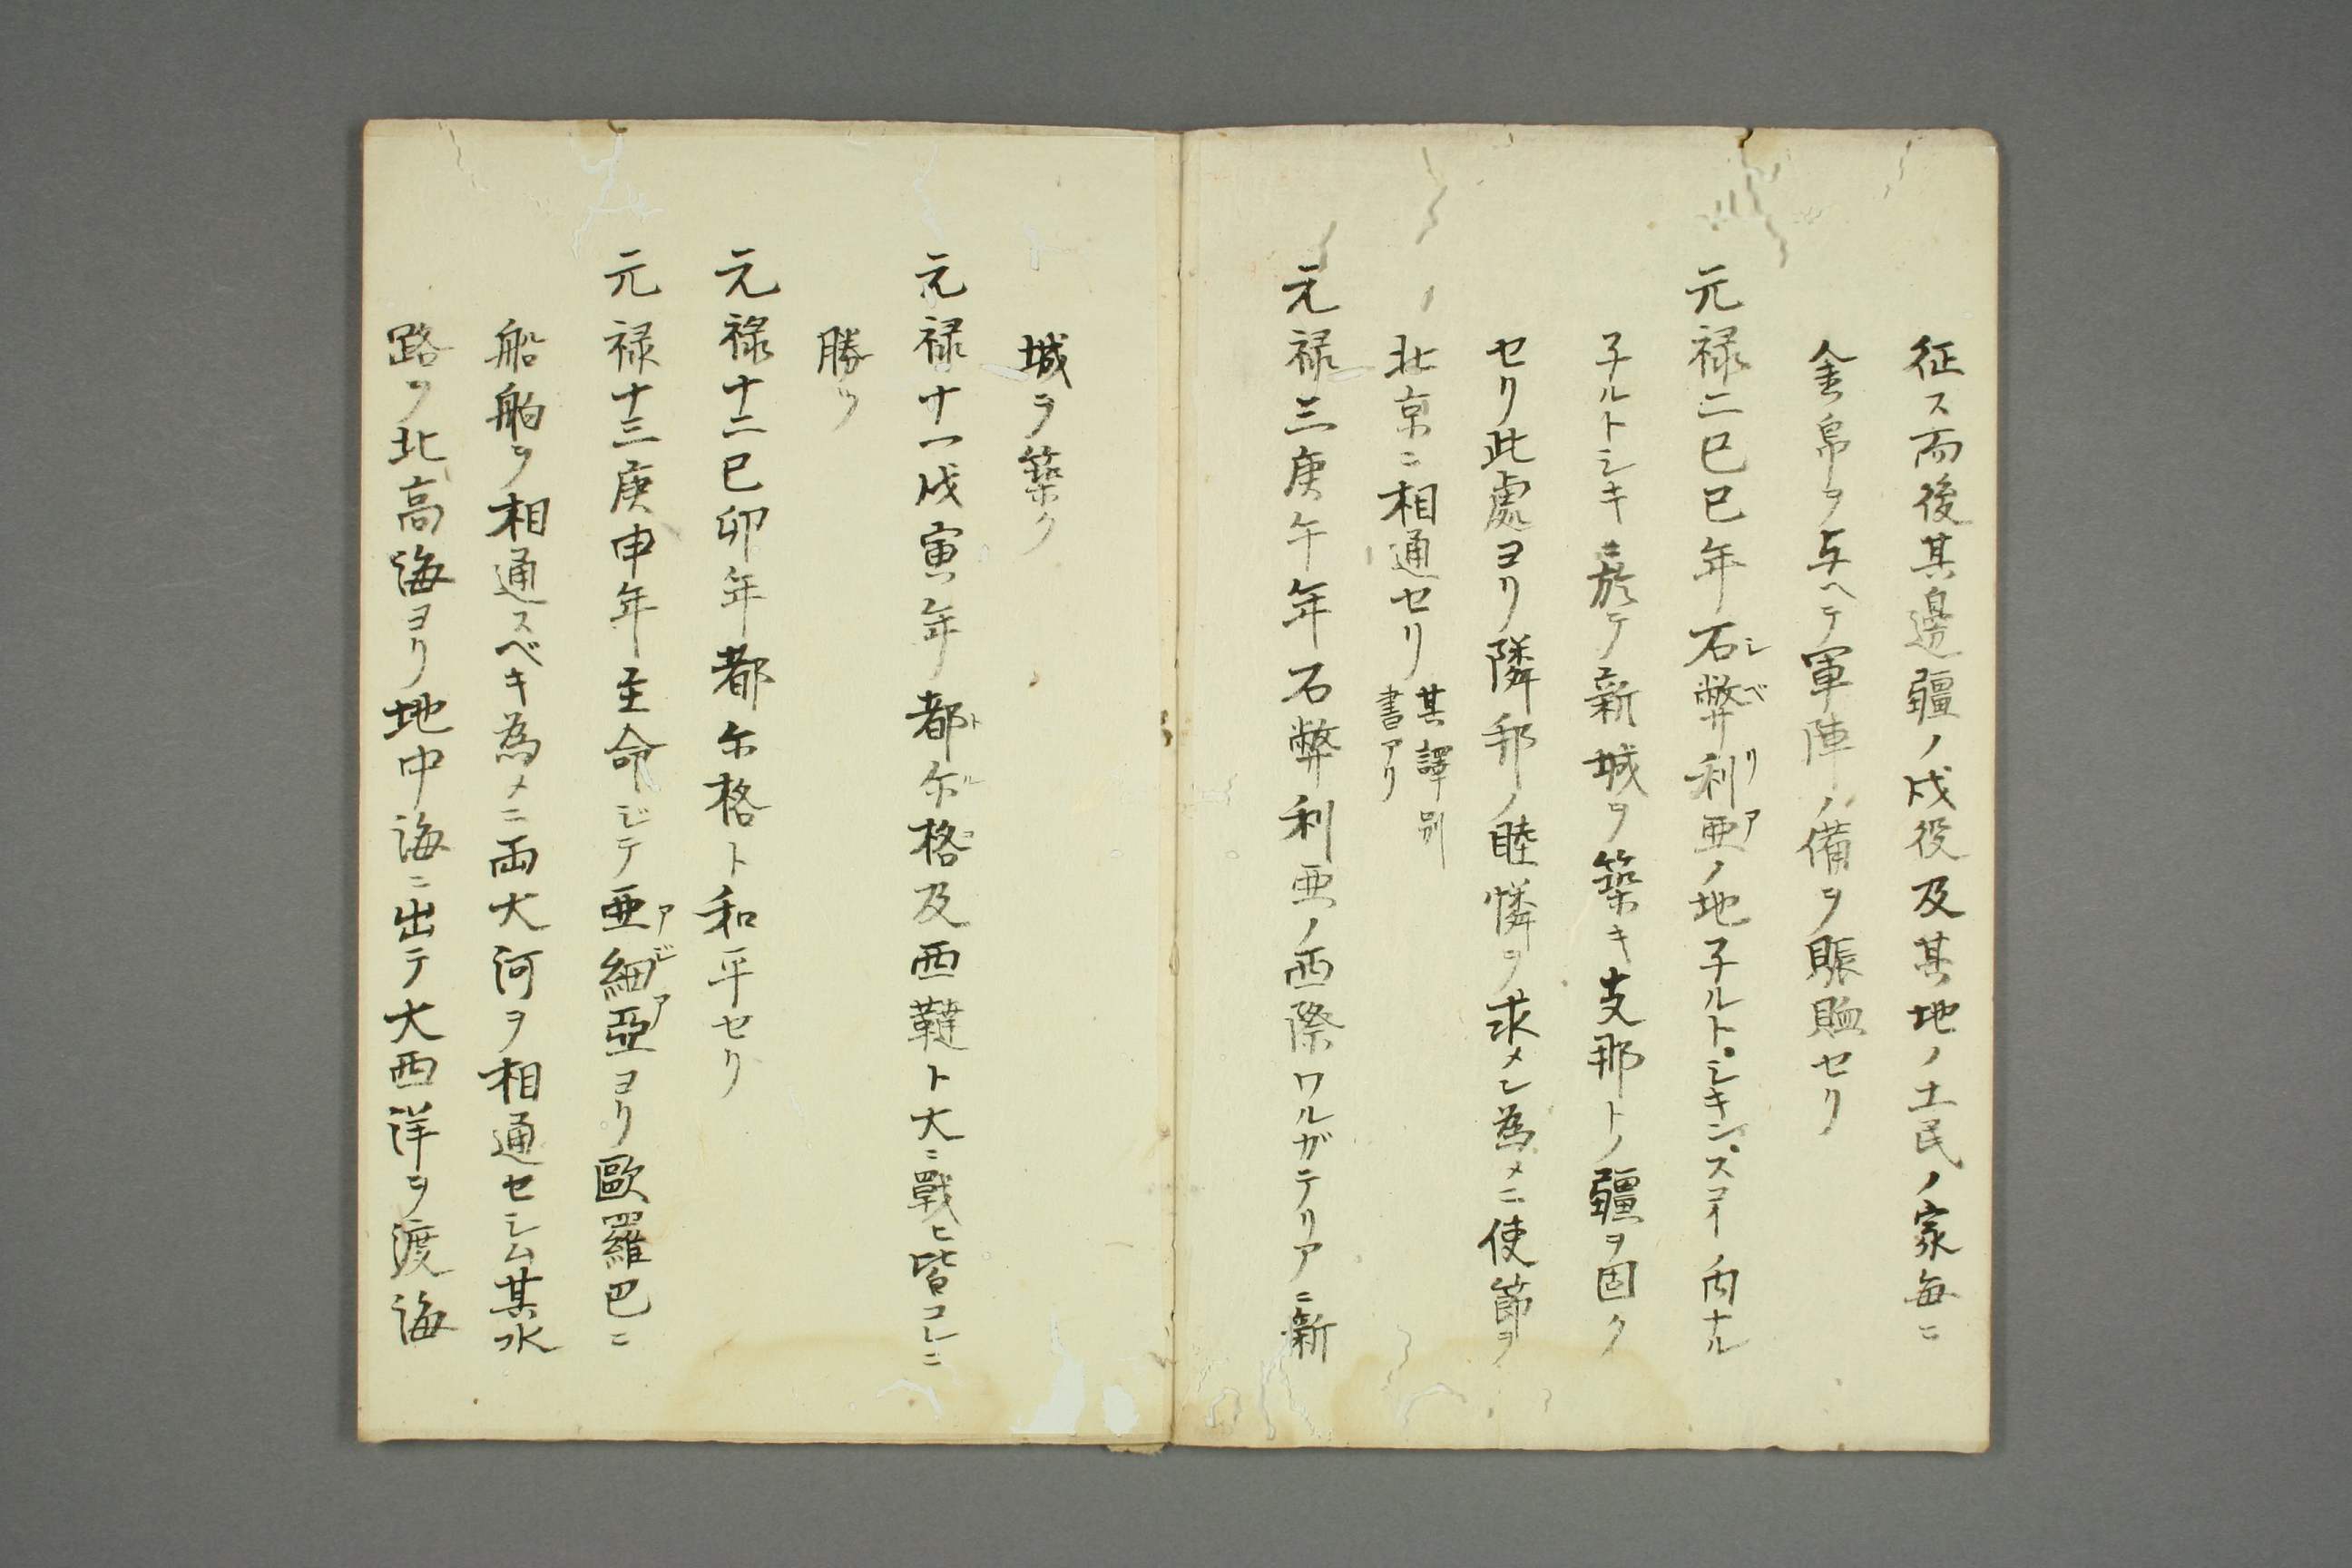 征ス而後其邊疆ノ戍役及其地ノ土民ノ家毎ニ
金帛ヲ与ヘテ軍陣ノ備ヲ賑賉セリ
元禄二己巳年石弊利亜ノ地子ルト.シキン.スコイノ内ナル
シベリア
子ルトシキニ於テ新城ヲ築キ支那トノ疆ヲ固ク
セリ此處ヨリ隣邦ノ睦憐ヲ求メン為メニ使節ヲ
北京ニ相通セリ
其譯別
書アリ
元禄三庚午年石弊利亜ノ西際ワルガテリアニ新
城ヲ築ク
元禄十一戊寅年都尓格及西韃ト大ニ戰ヒ皆コレニ
トルコ
勝ツ
元禄十二己卯年都尓格ト和平セリ
元禄十三庚申年主命ジテ亜細亞ヨリ歐羅巴ニ
アジア
船舶ヲ相通スベキ為メニ両大河ヲ相通セシム其水
路ヲ北高海ヨリ地中海ニ出テ大西洋ヲ渡海